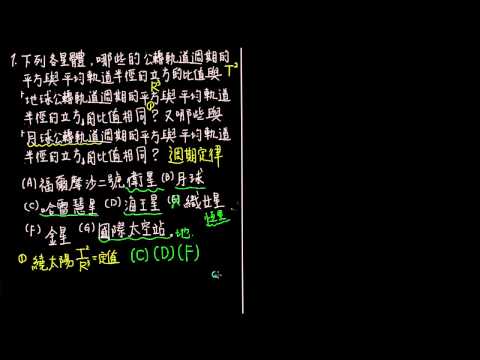 1. 下列各星體,哪些的公轉軌道週期的
平方與平均軌道半徑的立方的比值與 T²
R³
「地球公轉軌道週期的平方與平均軌道
①
半徑的立方」的比值相同?又哪些與
「月球公轉軌道週期的平方與平均軌道
半徑的立方」的比值相同? 週期定律
(A) 福爾摩沙二號衛星 (B) 月球
(C) 哈雷彗星 (D) 海王星 (E) 織女星
恆星
(F) 金星 (G) 國際太空站. 地
① 繞太陽 T²/R³ = 定值 (C)(D)(F)